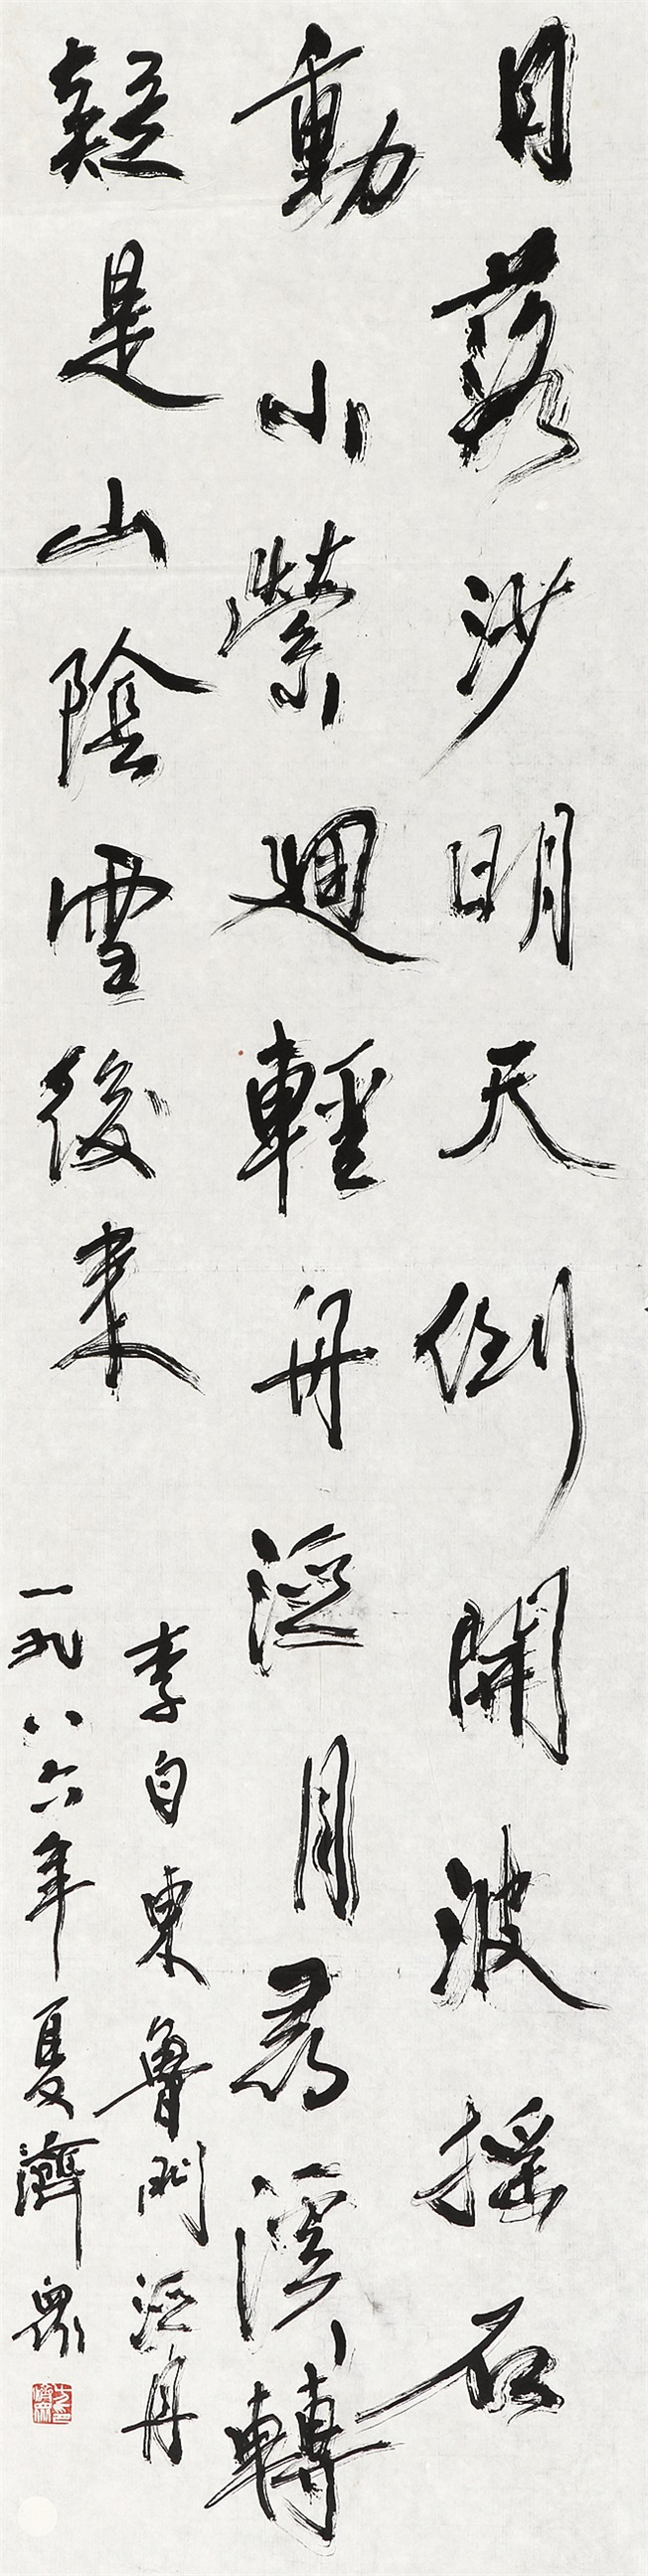 日落沙明天倒開波搖石
動水縈迴輕舟泛月尋溪轉
疑是山陰雪後來
李白東魯門泛舟
一九八六年夏濟衆